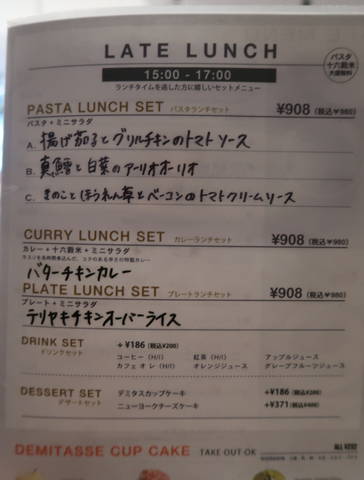 LATE LUNCH
15:00 - 17:00
ランチタイムを過した方に嬉しいセットメニュー
パスタ
十六穀米
大盛無料
PASTA LUNCH SET パスタランチセット ¥908 (税込¥980)
パスタ+ミニサラダ
A. 揚げ茄子とグリルチキンのトマトソース
B. 真鱈と白菜のアーリオオーリオ
C. きのことほうれん草とベーコンのトマトクリームソース
CURRY LUNCH SET カレーランチセット ¥908 (税込¥980)
カレー+十六穀米+ミニサラダ
バターチキンカレー
PLATE LUNCH SET プレートランチセット ¥908 (税込¥980)
プレート+ミニサラダ
テリヤキチキンオーバーライス
DRINK SET +¥186 (税込¥200)
ドリンクセット
コーヒー (H/I) 紅茶 (H/I) アップルジュース
カフェオレ (H/I) オレンジジュース グレープフルーツジュース
DESSERT SET デミタスカップケーキ +¥186 (税込¥200)
デザートセット ニューヨークチーズケーキ +¥371 (税込¥400)
DEMITASSE CUP CAKE TAKE OUT OK